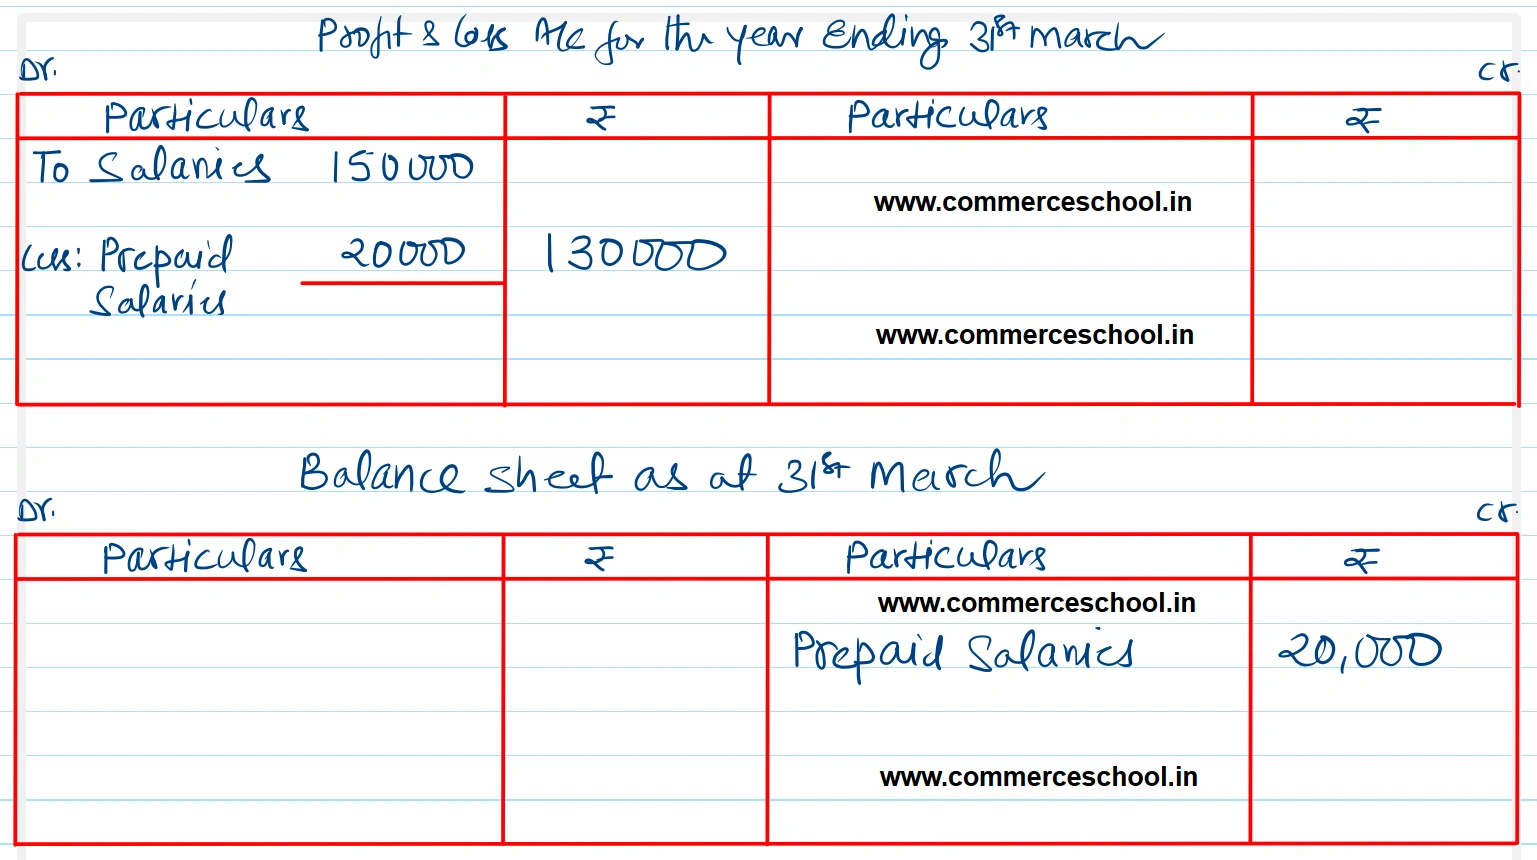 Profit & Loss A/c for the year Ending 31st March
Dr. Cr.
Particulars ₹ Particulars ₹
To Salaries 150000
www.commerceschool.in
Less: Prepaid 20000 130000
Salaries
www.commerceschool.in
Balance sheet as at 31st March
Dr. Cr.
Particulars ₹ Particulars ₹
www.commerceschool.in
Prepaid Salaries 20,000
www.commerceschool.in